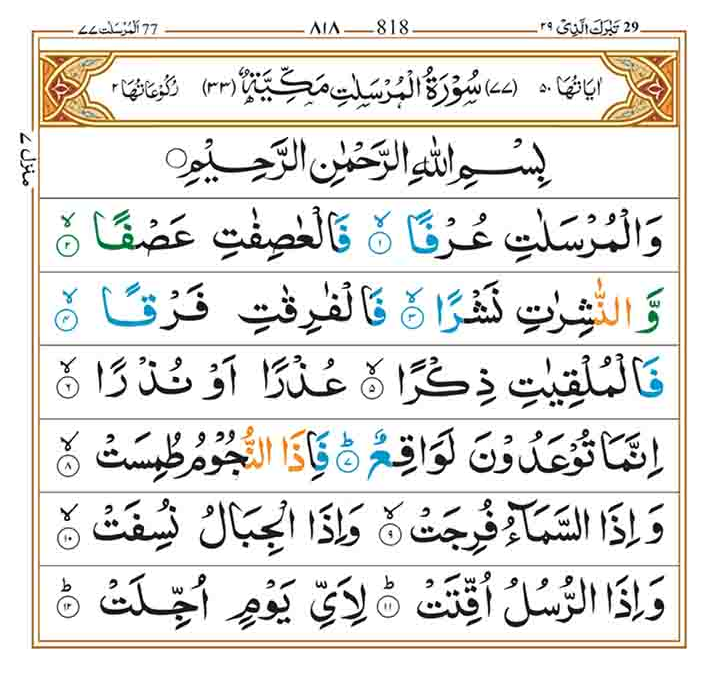 29 تَبٰرَكَ الَّذِىْ ٢٩ 818 ٨١٨ 77 اَلْمُرْسَلٰت ٧٧
اٰيَاتُهَا ٥٠ (٧٧) سُوْرَةُ الْمُرْسَلٰتِ مَكِّيَّةٌ (٣٣) رُكُوْعَاتُهَا ٢
منزل ٧
بِسْمِ اللّٰهِ الرَّحْمٰنِ الرَّحِيْمِ
وَالْمُرْسَلٰتِ عُرْفًا ۙ١ فَالْعٰصِفٰتِ عَصْفًا ۙ٢
وَّ النّٰشِرٰتِ نَشْرًا ۙ٣ فَالْفٰرِقٰتِ فَرْقًا ۙ٤
فَالْمُلْقِيٰتِ ذِكْرًا ۙ٥ عُذْرًا اَوْ نُذْرًا ۙ٦
اِنَّمَا تُوْعَدُوْنَ لَوَاقِعٌ ؕ٧ فَاِذَا النُّجُوْمُ طُمِسَتْ ۙ٨
وَ اِذَا السَّمَآءُ فُرِجَتْ ۙ٩ وَاِذَا الْجِبَالُ نُسِفَتْ ۙ١٠
وَاِذَا الرُّسُلُ اُقِّتَتْ ؕ١١ لِاَىِّ يَوْمٍ اُجِّلَتْ ؕ١٢